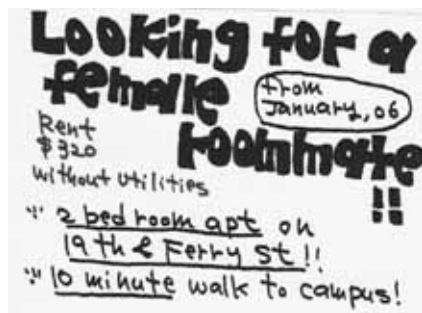 Looking for a
female
from
January, 06
roommate
!!
Rent
$320
without utilities
2 bedroom apt on
19th & Ferry St!!
10 minute walk to campus!